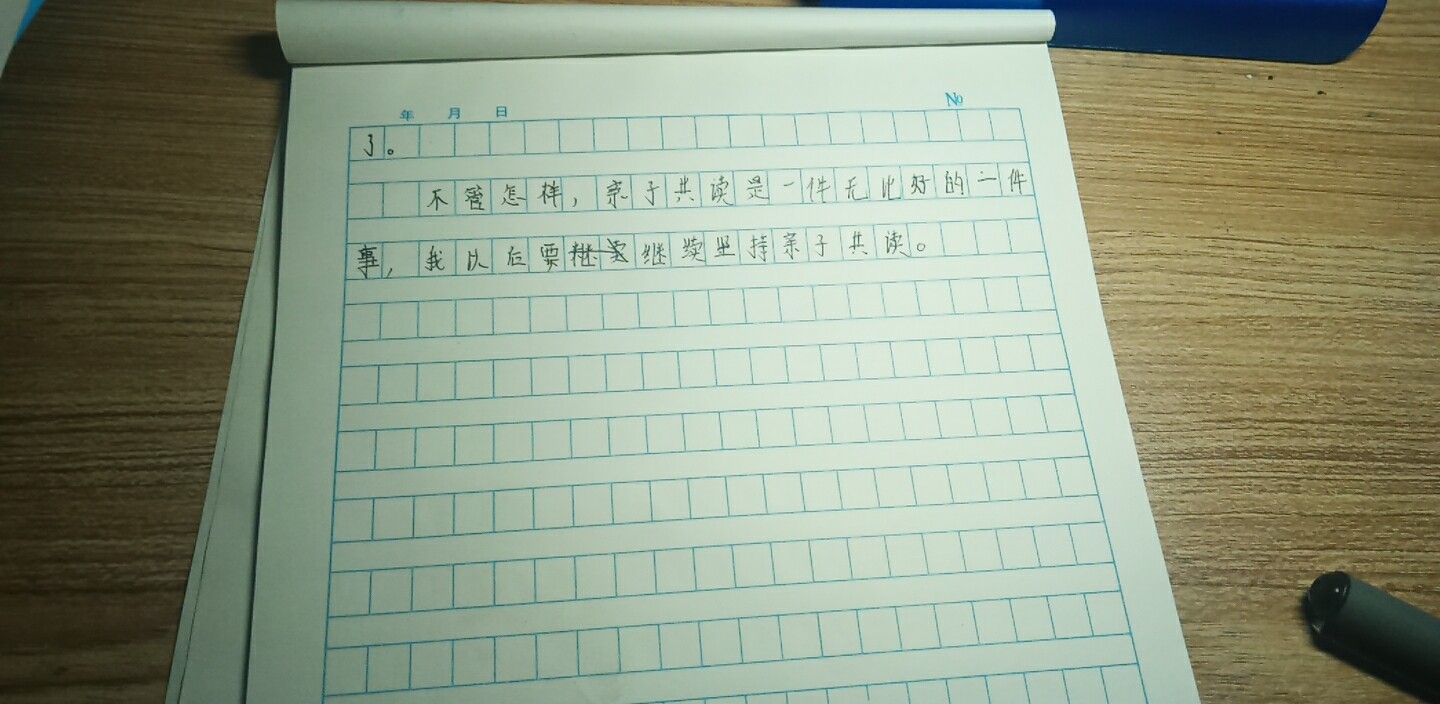 年 月 日 №
了。
不管怎样，亲子共读是一件无比好的一件
事，我以后要继续坚持亲子共读。